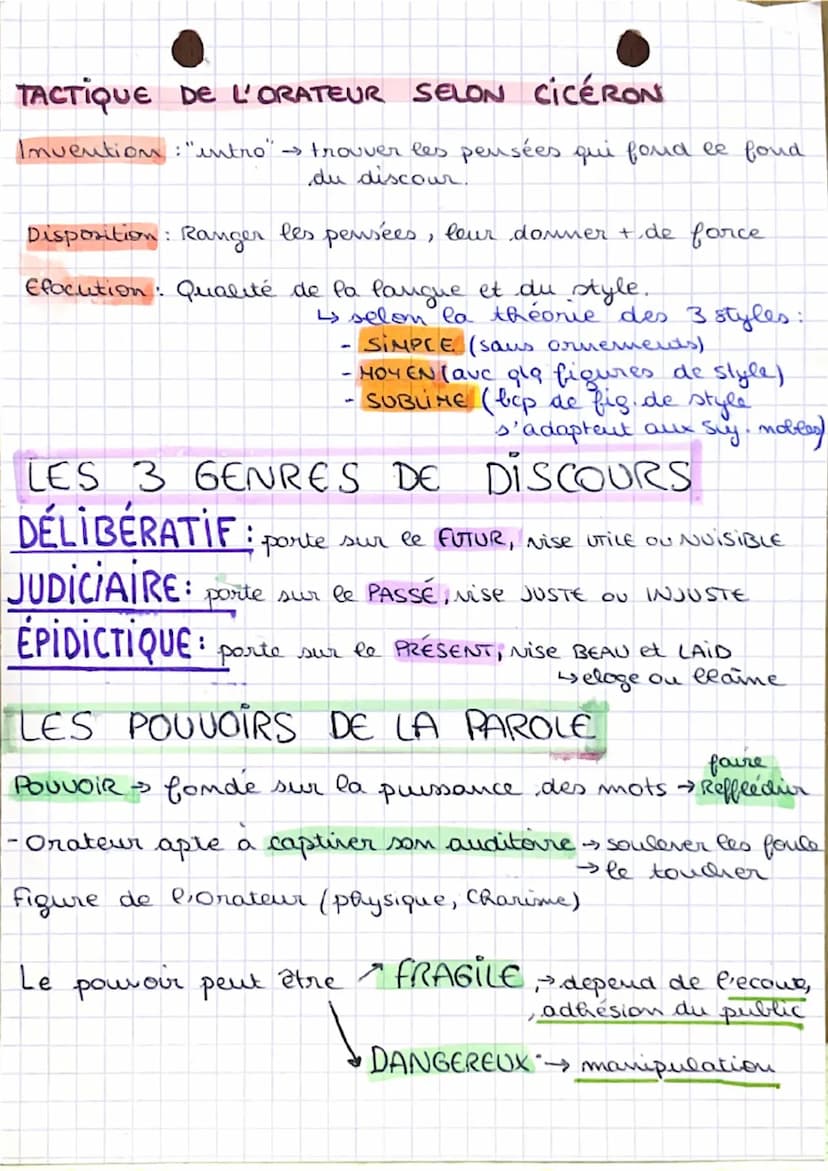 TACTIQUE DE L'ORATEUR SELON CICÉRON
Invention : "intro" → trouver les pensées qui fond le fond
du discour.
Disposition : Ranger les pensées, leur donner + de force
Elocution : Qualité de la langue et du style.
↳ selon la théorie des 3 styles :
- SIMPLE (sans ornements)
- MOYEN (avc qlq figures de style)
- SUBLIME (bcp de fig. de style
s'adaptent aux suj. nobles)
LES 3 GENRES DE DISCOURS
DÉLIBÉRATIF : porte sur le FUTUR, vise UTILE OU NUISIBLE
JUDICIAIRE : porte sur le PASSÉ, vise JUSTE OU INJUSTE
ÉPIDICTIQUE : porte sur le PRÉSENT, vise BEAU et LAID
↳ eloge ou blâme
LES POUVOIRS DE LA PAROLE
POUVOIR → fondé sur la puissance des mots → faire Reffléchir
- Orateur apte à captiver son auditoire → soulever les foule
→ le toucher
Figure de l'orateur (physique, Charisme)
Le pouvoir peut être ↗ FRAGILE → depend de l'ecoute,
adhésion du public
↘ DANGEREUX → manipulation